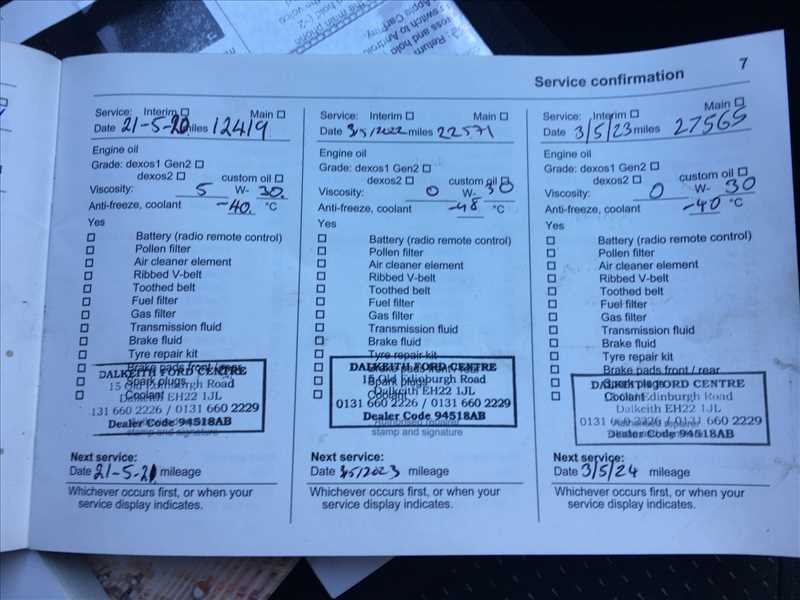 7
Service confirmation
Service: Interim Main
Date 21-5-20 miles 12419
Engine oil
Grade: dexos1 Gen2
dexos2 custom oil
Viscosity: 5 W- 30.
Anti-freeze, coolant -40. °C
Yes
Battery (radio remote control)
Pollen filter
Air cleaner element
Ribbed V-belt
Toothed belt
Fuel filter
Gas filter
Transmission fluid
Brake fluid
Tyre repair kit
Brake pads front / rear
DALKEITH FORD CENTRE
Spark plugs
Edinburgh Road
Coolant
Dalkeith EH22 1JL
131 660 2226 / 0131 660 2229
Dealer Code 94518AB
stamp and signature
Next service:
Date 21-5-21 mileage
Whichever occurs first, or when your
service display indicates.
Service: Interim Main
Date 3/5/2022 miles 22571
Engine oil
Grade: dexos1 Gen2
dexos2 custom oil
Viscosity: 0 W- 30
Anti-freeze, coolant -48 °C
Yes
Battery (radio remote control)
Pollen filter
Air cleaner element
Ribbed V-belt
Toothed belt
Fuel filter
Gas filter
Transmission fluid
Brake fluid
Tyre repair kit
Brake pads front / rear
DALKEITH FORD CENTRE
Spark plugs
15 Old Edinburgh Road
Coolant
Dalkeith EH22 1JL
0131 660 2226 / 0131 660 2229
Dealer Code 94518AB
Authorised repairer
stamp and signature
Next service:
Date 3/5/2023 mileage
Whichever occurs first, or when your
service display indicates.
Service: Interim Main
Date 3/5/23 miles 27565
Engine oil
Grade: dexos1 Gen2
dexos2 custom oil
Viscosity: 0 W- 30
Anti-freeze, coolant -40 °C
Yes
Battery (radio remote control)
Pollen filter
Air cleaner element
Ribbed V-belt
Toothed belt
Fuel filter
Gas filter
Transmission fluid
Brake fluid
Tyre repair kit
Brake pads front / rear
Spark plugs
FORD CENTRE
Coolant
Edinburgh Road
Dalkeith EH22 1JL
0131 660 2226 / 0131 660 2229
Authorised repairer
Dealer Code 94518AB
Next service:
Date 3/5/24 mileage
Whichever occurs first, or when your
service display indicates.